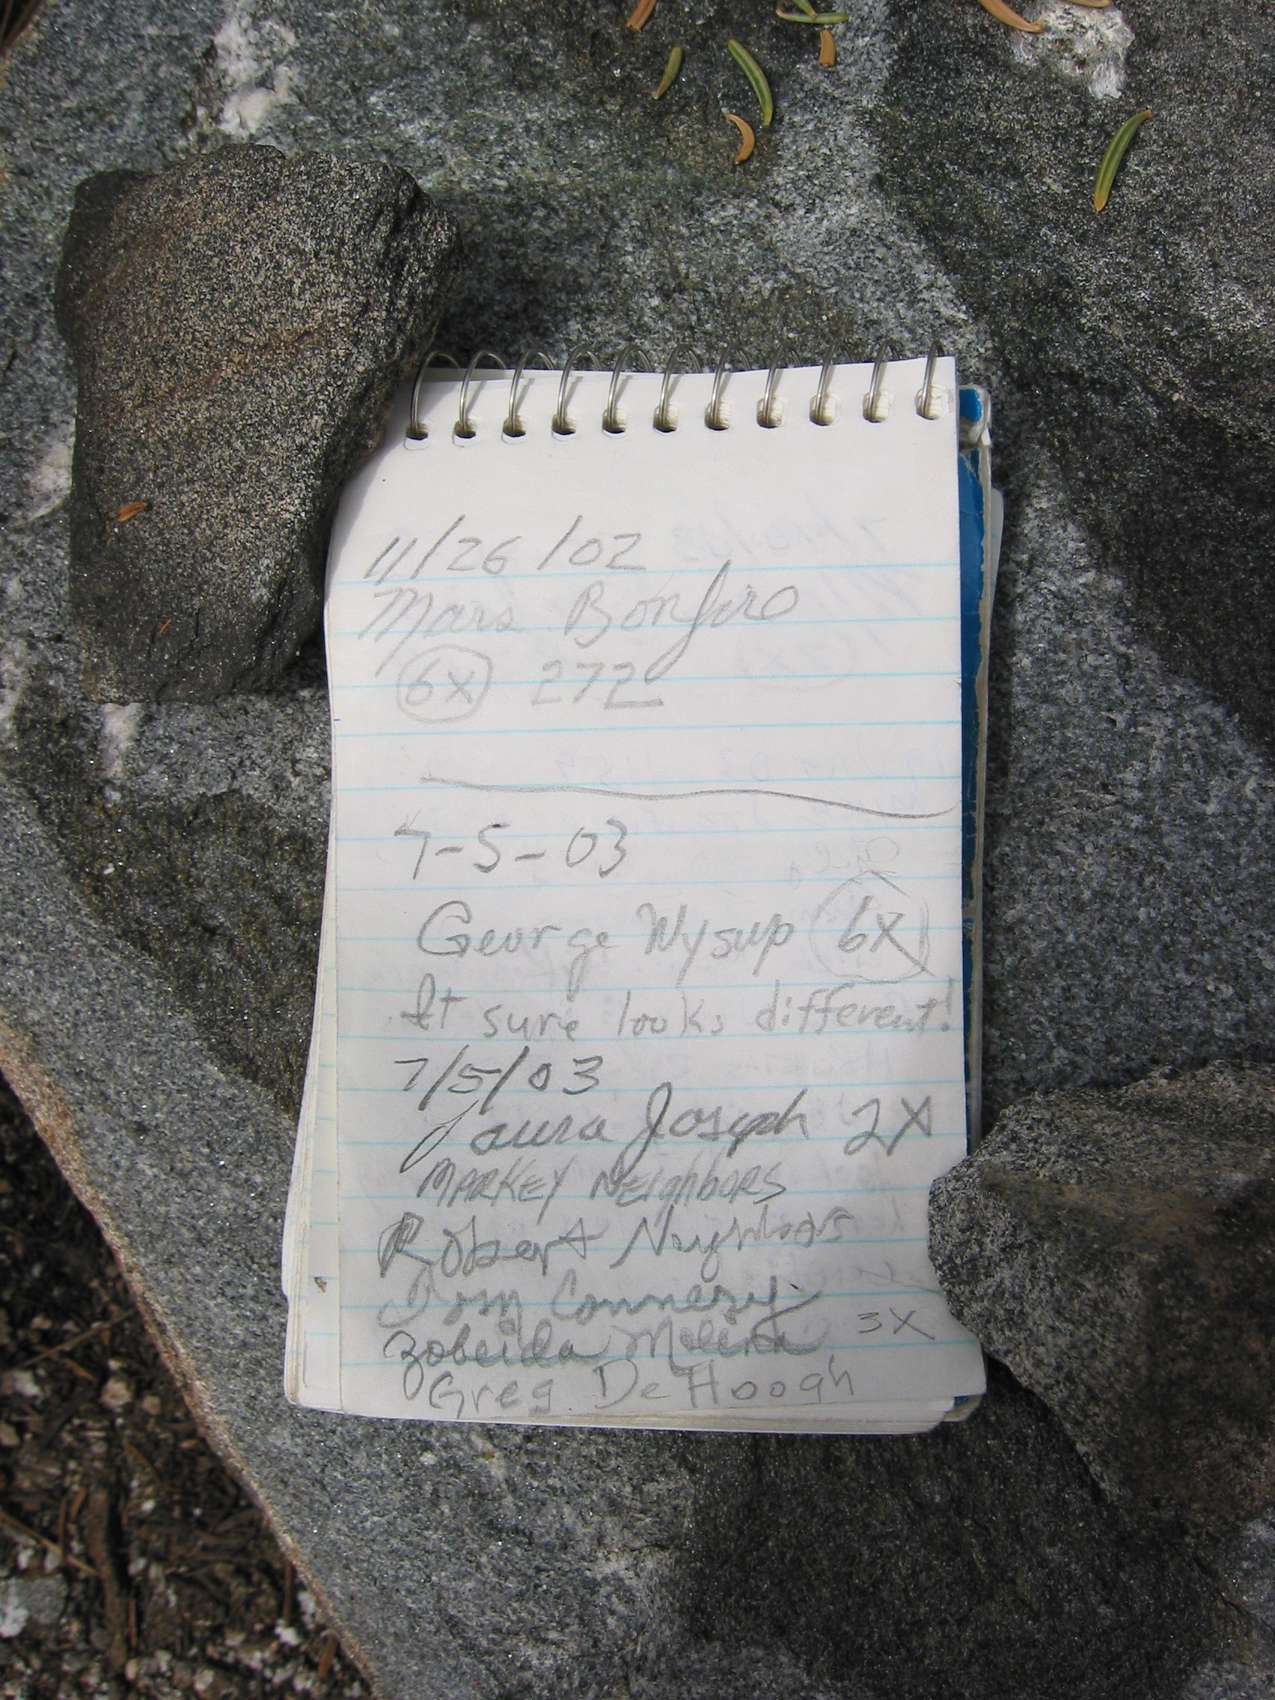 11/26/02
Mars Bonfire
6x 272
7-5-03
George Wysup 6X
It sure looks different!
7/5/03
Laura Joseph 2X
MARKEY NEIGHBORS
Robert Neighbors
Dom Connery
Zobeida Molina 3X
Greg DeHoogh